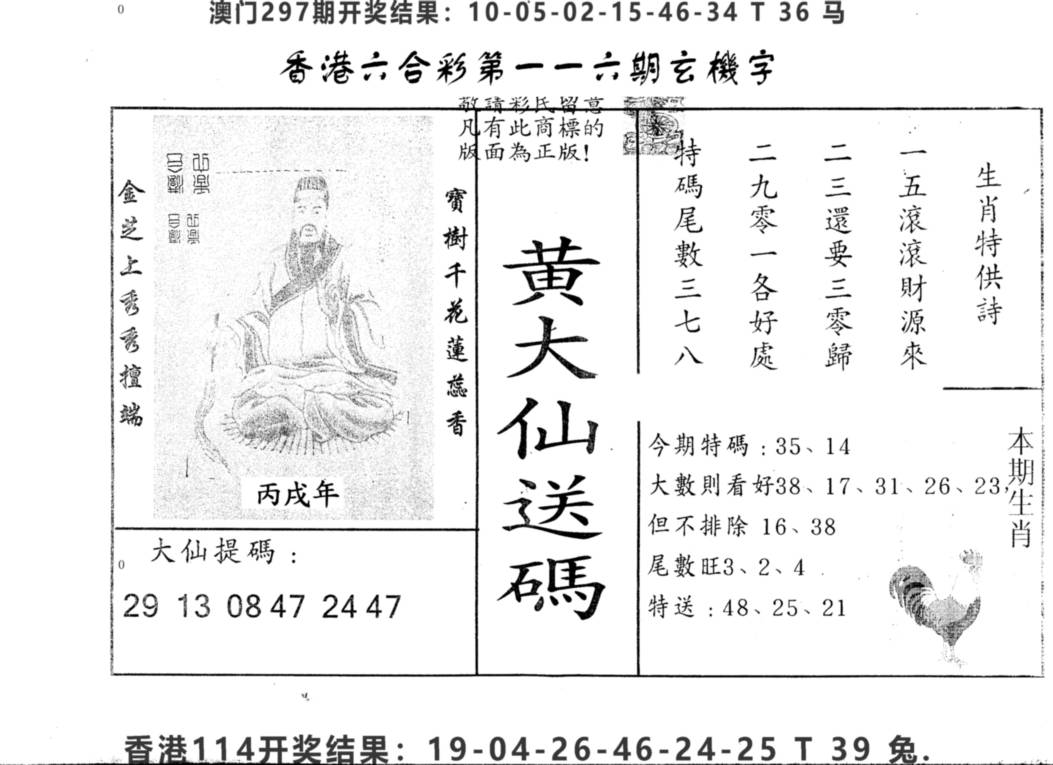 澳门297期开奖结果：10-05-02-15-46-34 T 36 马
香港六合彩第一一六期玄機字
敬請彩民留意
凡有此商標的
版面為正版!
金芝上秀秀擅端
寶樹千花蓮蕊香
丙戌年
大仙提碼：
29 13 08 47 24 47
黄大仙送碼
生肖特供詩
一五滾滾財源來
二三還要三零歸
二九零一各好處
特碼尾數三七八
本期生肖
今期特碼：35、14
大數則看好38、17、31、26、23,
但不排除 16、38
尾數旺3、2、4
特送：48、25、21
香港114开奖结果：19-04-26-46-24-25 T 39 兔.